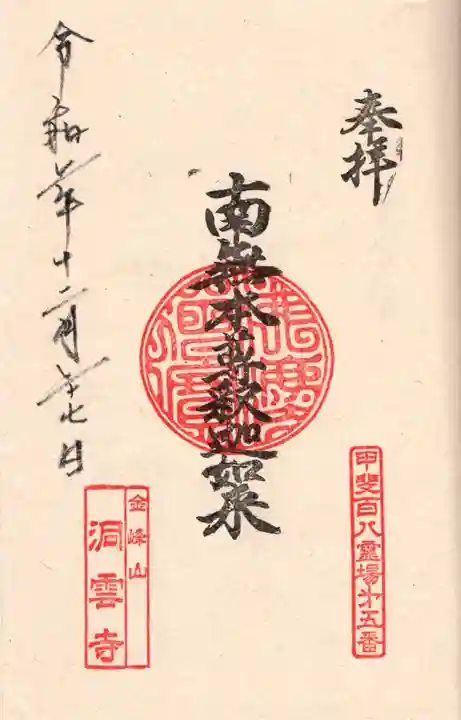 奉拝
甲斐百八霊場第五番
南無本尊釈迦如来
金峰山
洞雲寺
令和七年十二月廿七日